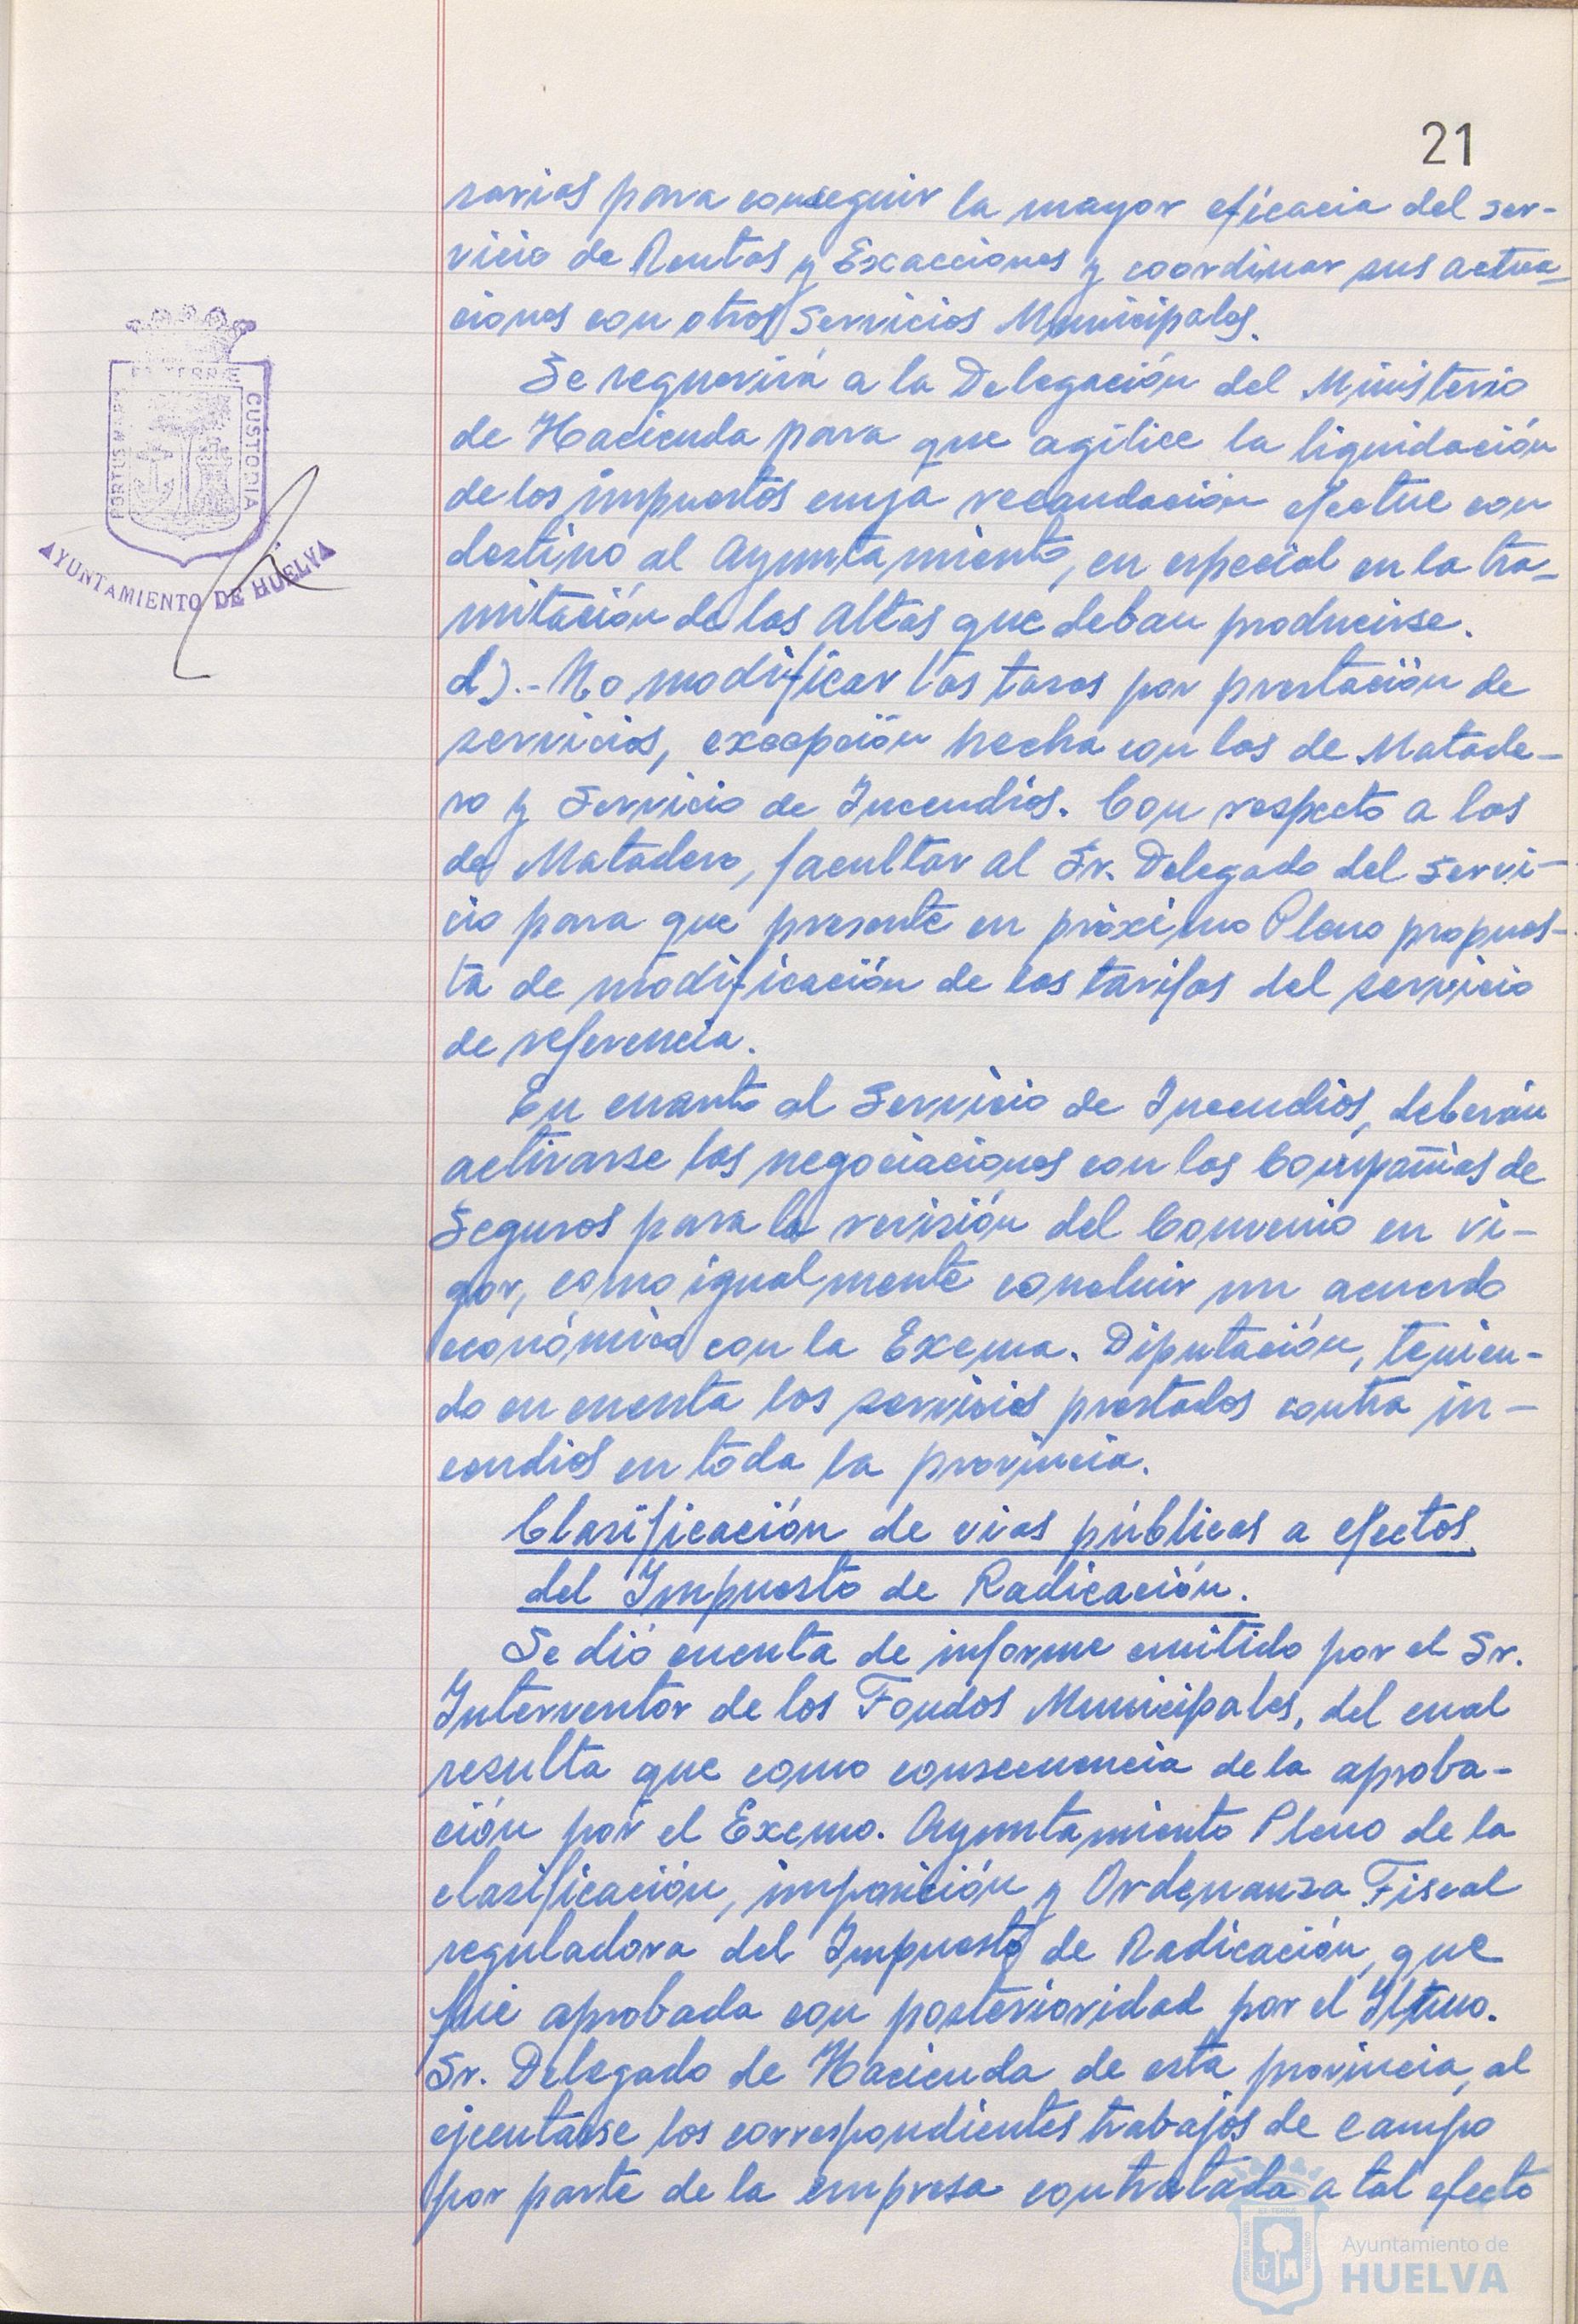 21
sarios para conseguir la mayor eficacia del ser-
vicio de Rentas y Exacciones y coordinar sus actua-
ciones con otros Servicios Municipales.
Se requerirá a la Delegación del Ministerio
de Hacienda para que agilice la liquidación
de los impuestos cuya recaudación efectue con
destino al Ayuntamiento, en especial en la tra-
mitación de las altas que deban producirse.
d).- No modificar las tasas por prestación de
servicios, excepción hecha con las de Matade-
ro y Servicio de Incendios. Con respecto a las
de Matadero, facultar al Sr. Delegado del servi-
cio para que presente en próximo Pleno propues-
ta de modificación de las tarifas del servicio
de referencia.
En cuanto al Servicio de Incendios, deberán
activarse las negociaciones con las Compañias de
Seguros para la revisión del Convenio en vi-
gor, como igualmente concluir un acuerdo
económico con la Excma. Diputación, tenien-
do en cuenta los servicios prestados contra in-
cendios en toda la provincia.
Clasificación de vias públicas a efectos
del Impuesto de Radicación.
Se dió cuenta de informe emitido por el Sr.
Interventor de los Fondos Municipales, del cual
resulta que como consecuencia de la aproba-
ción por el Excmo. Ayuntamiento Pleno de la
clasificación, imposición y Ordenanza Fiscal
reguladora del Impuesto de Radicación, que
fue aprobada con posterioridad por el Iltmo.
Sr. Delegado de Hacienda de esta provincia, al
ejecutarse los correspondientes trabajos de campo
por parte de la empresa contratada a tal efecto
PORTUS MARIS
TERRÆ
CUSTODIA
AYUNTAMIENTO DE HUELVA
Ayuntamiento de
HUELVA